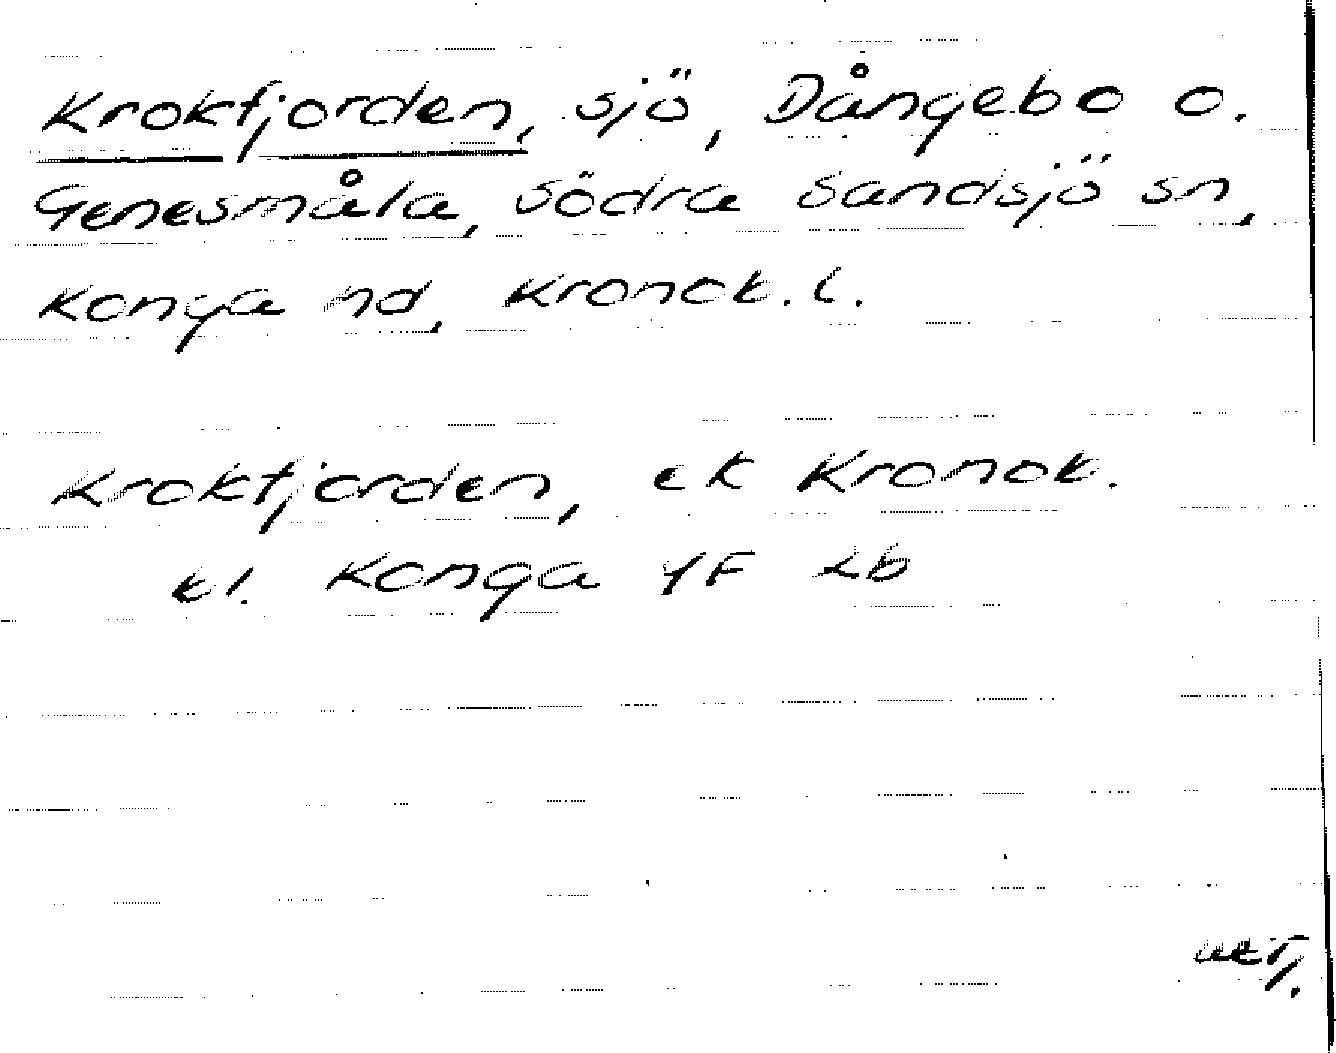 Krokfjorden, sjö, Dångebo o.
Genesmåla, Södra Sandsjö sn,
Konga hd, Kronob. l.
Krokfjorden, ek Kronob.
bl. Konga 4F 2b